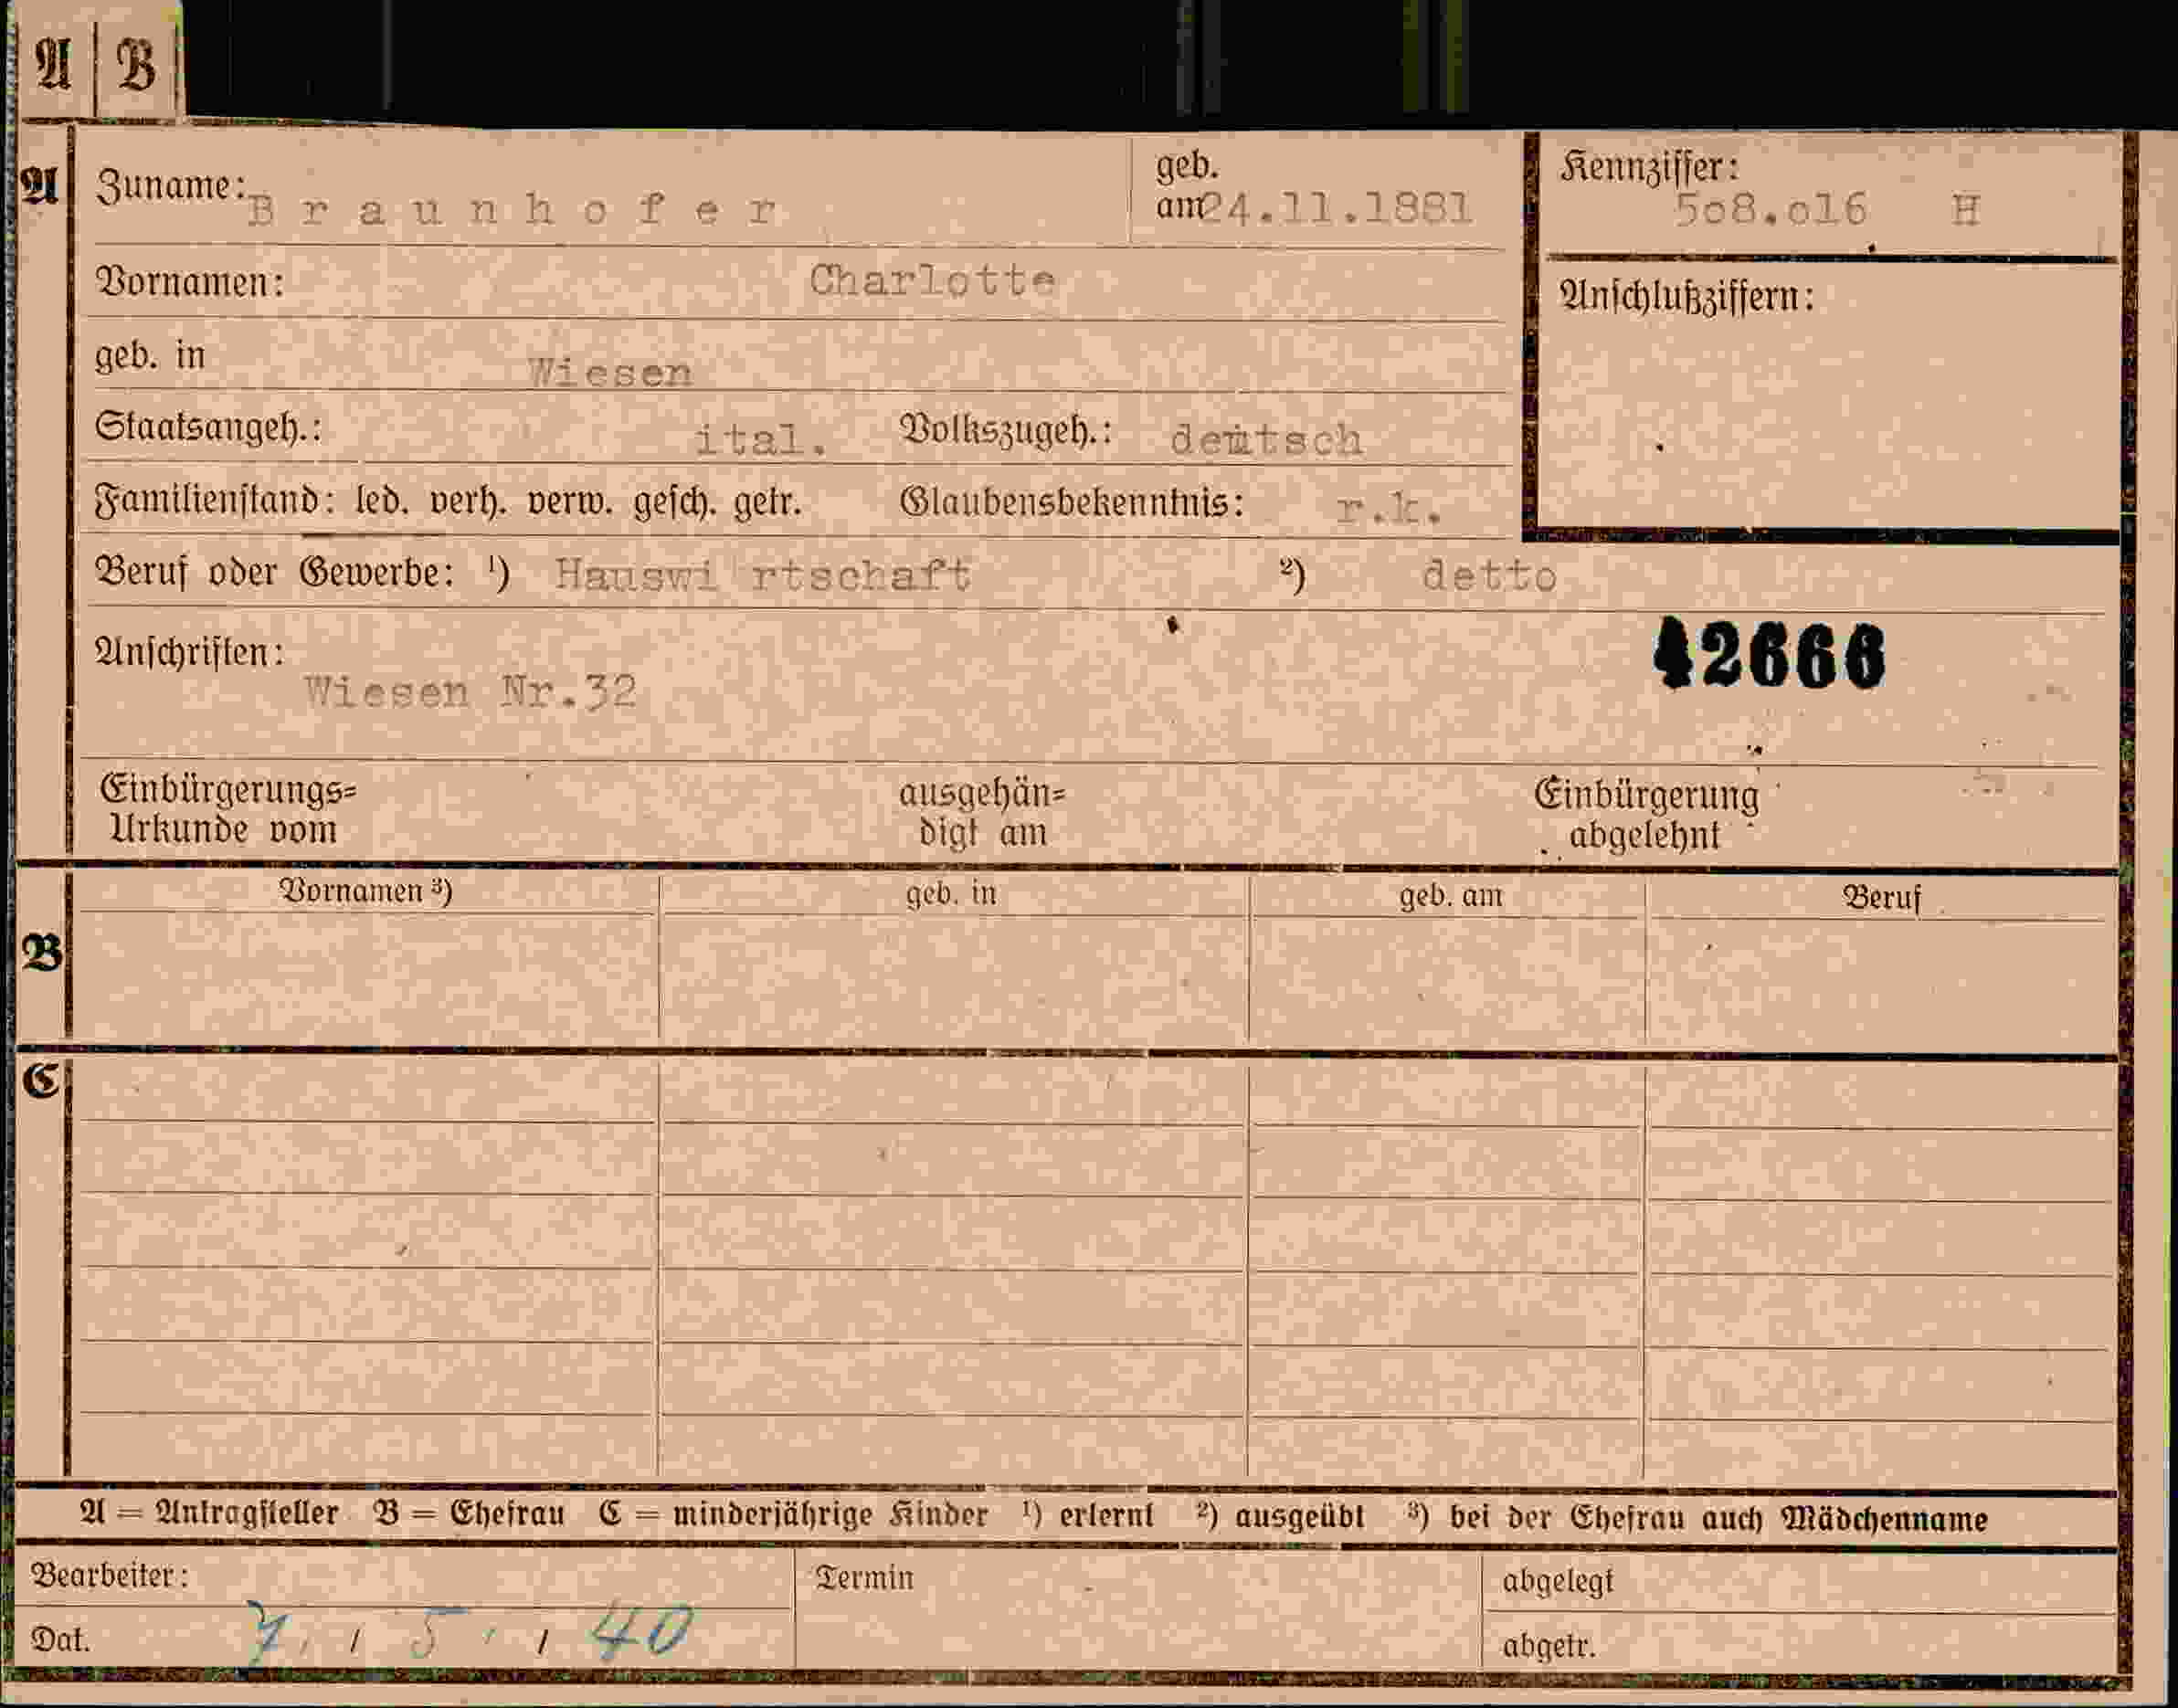 A B
A Zuname: Braunhofer geb. am 24.11.1881 Kennziffer: 5o8.o16 H
Vornamen: Charlotte
Anschlußziffern:
geb. in Wiesen
Staatsangeh.: ital. Volkszugeh.: deutsch
Familienstand: led. verh. verw. gesch. getr. Glaubensbekenntnis: r.k.
Beruf oder Gewerbe: ¹) Hauswi rtschaft ²) detto
42666
Anschriften:
Wiesen Nr.32
Einbürgerungs= ausgehän= Einbürgerung
Urkunde vom digt am abgelehnt
Vornamen ³) geb. in geb. am Beruf
B
C
A = Antragsteller B = Ehefrau C = minderjährige Kinder ¹) erlernt ²) ausgeübt ³) bei der Ehefrau auch Mädchenname
Bearbeiter: Termin abgelegt
Dat. 7. / 5. / 40 abgetr.